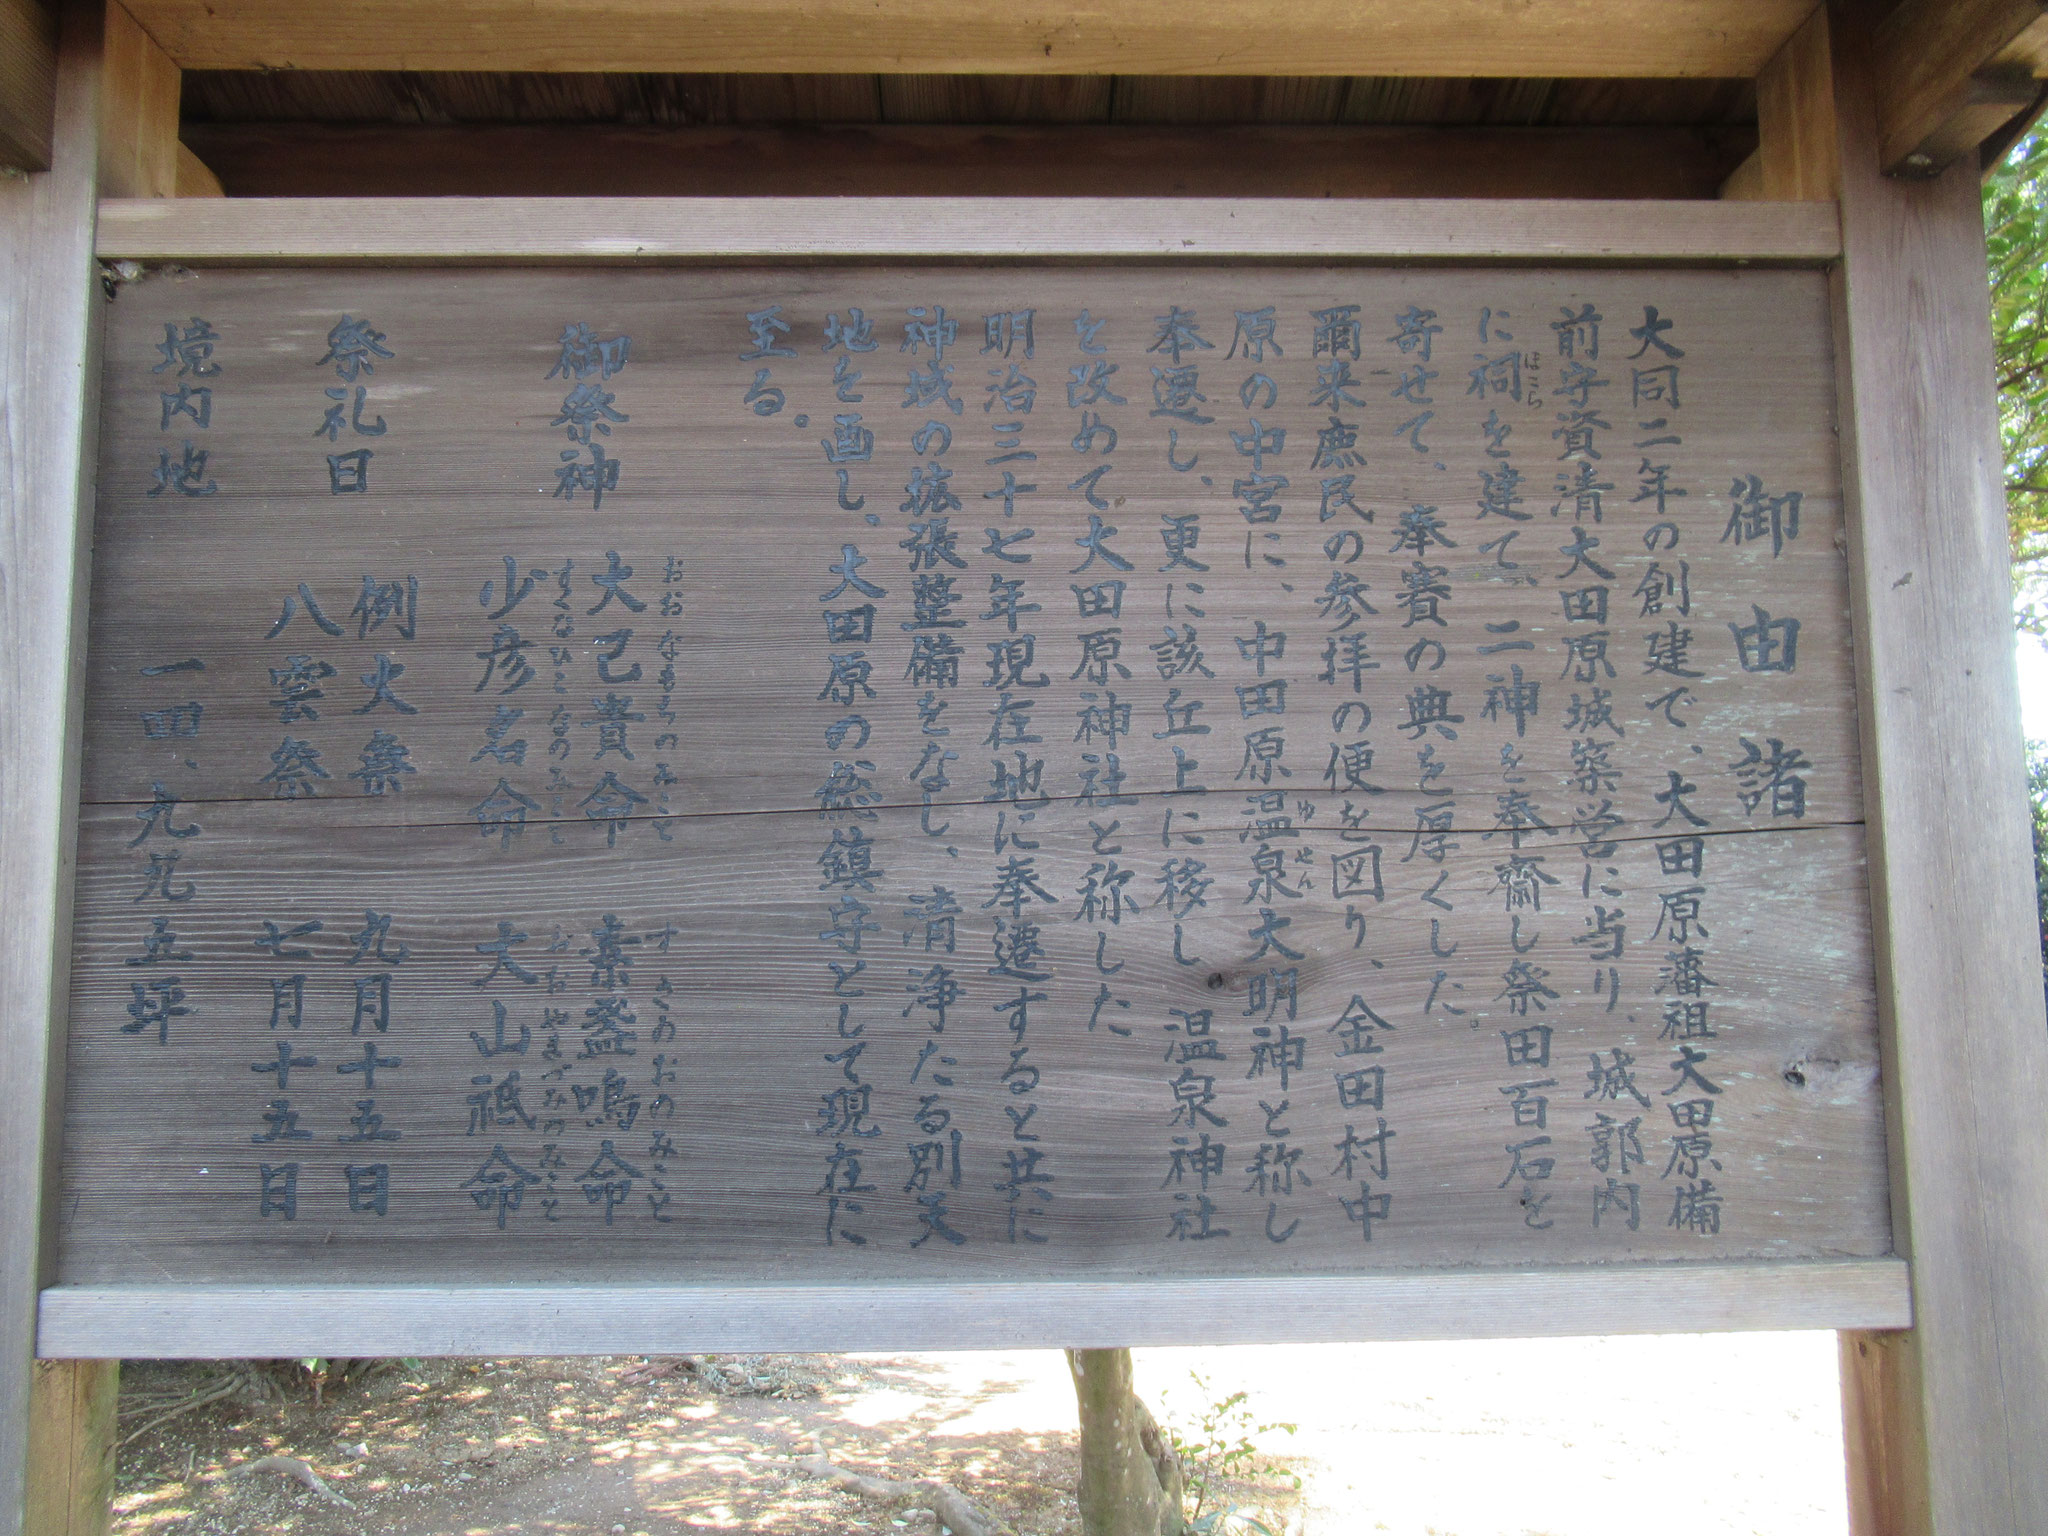 御由諸
大同二年の創建で、大田原藩祖大田原備
前守資清大田原城築営に当り、城郭内
に祠を建て、二神を奉齋し祭田百石を
ほこら
寄せて、奉賽の典を厚くした。
爾来庶民の参拝の便を図り、金田村中
原の中宮に、中田原温泉大明神と称し
ゆせん
奉遷し、更に該丘上に移し温泉神社
を改めて大田原神社と称した
明治三十七年現在地に奉遷すると共に
神域の拡張整備をなし、清浄たる別天
地を画し、大田原の総鎮守として現在に
至る。
御祭神 大己貴命 素盞鳴命
おおなもちのみこと すさのおのみこと
少彦名命 大山祇命
すくなひこなのみこと おおやまづみのみこと
祭礼日 例大祭 九月十五日
八雲祭 七月十五日
境内地 一四、九九五坪